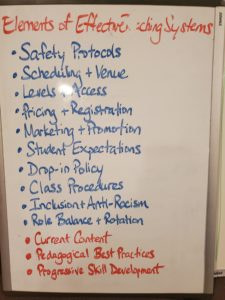 Elements of Effective ching Systems
• Safety Protocols
• Scheduling + Venue
• Levels + Access
• Pricing + Registration
• Marketing + Promotion
• Student Expectations
• Drop-in Policy
• Class Procedures
• Inclusion + Anti-Racism
• Role Balance + Rotation
• Current Content
• Pedagogical Best Practices
• Progressive Skill Development